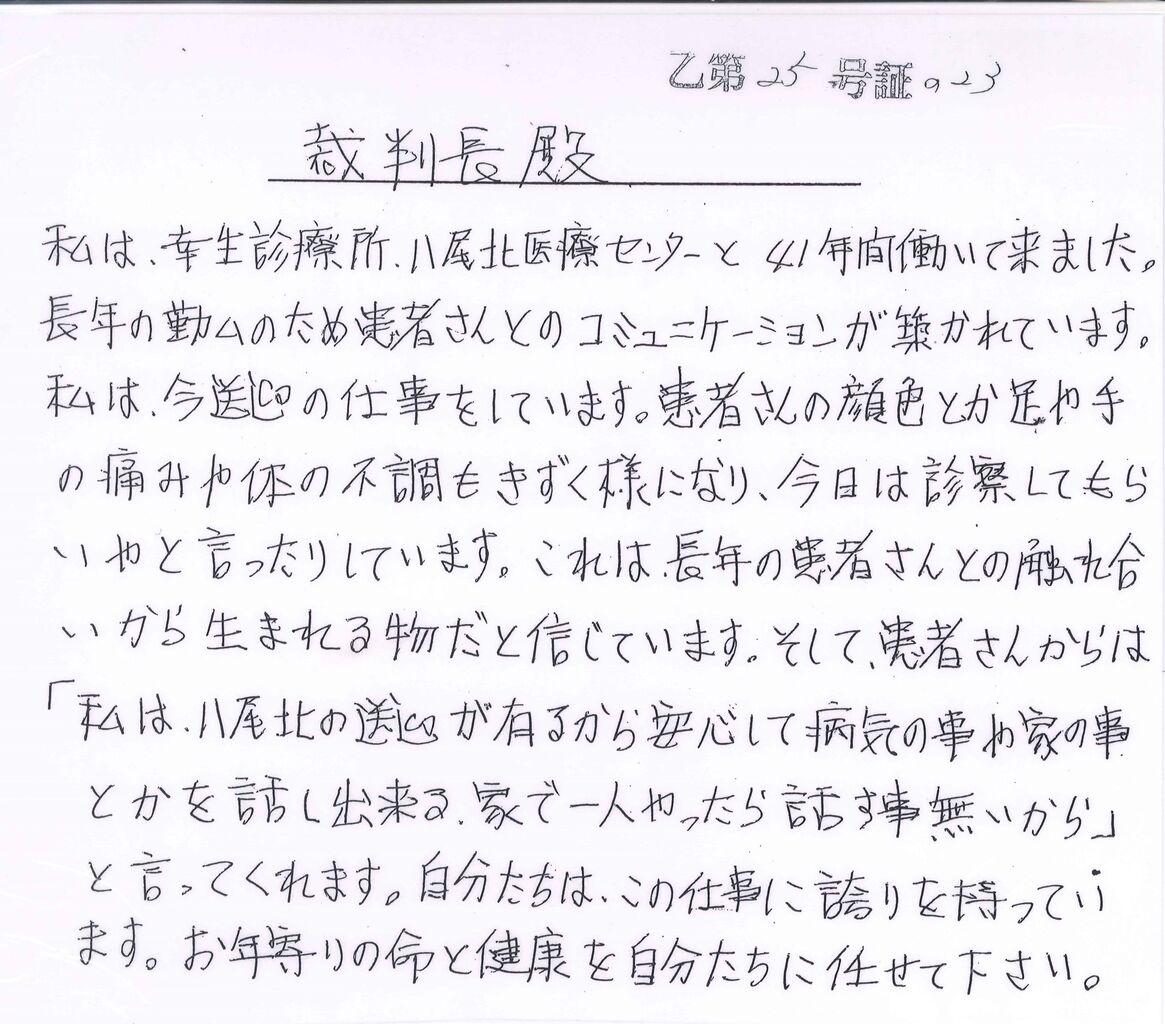 乙第25号証の23
裁判長殿
私は、幸生診療所、八尾北医療センターと41年間働いて来ました。
長年の勤ムのため患者さんとのコミュニケーションが築かれています。
私は、今送迎の仕事をしています。患者さんの顔色とか足や手
の痛みや体の不調もきずく様になり、今日は診察してもら
いやと言ったりしています。これは、長年の患者さんとの触れ合
いから生まれる物だと信じています。そして、患者さんからは
「私は、八尾北の送迎が有るから安心して病気の事や家の事
とかを話し出来る、家で一人やったら話す事無いから」
と言ってくれます。自分たちは、この仕事に誇りを持ってい
ます。お年寄りの命と健康を自分たちに任せて下さい。